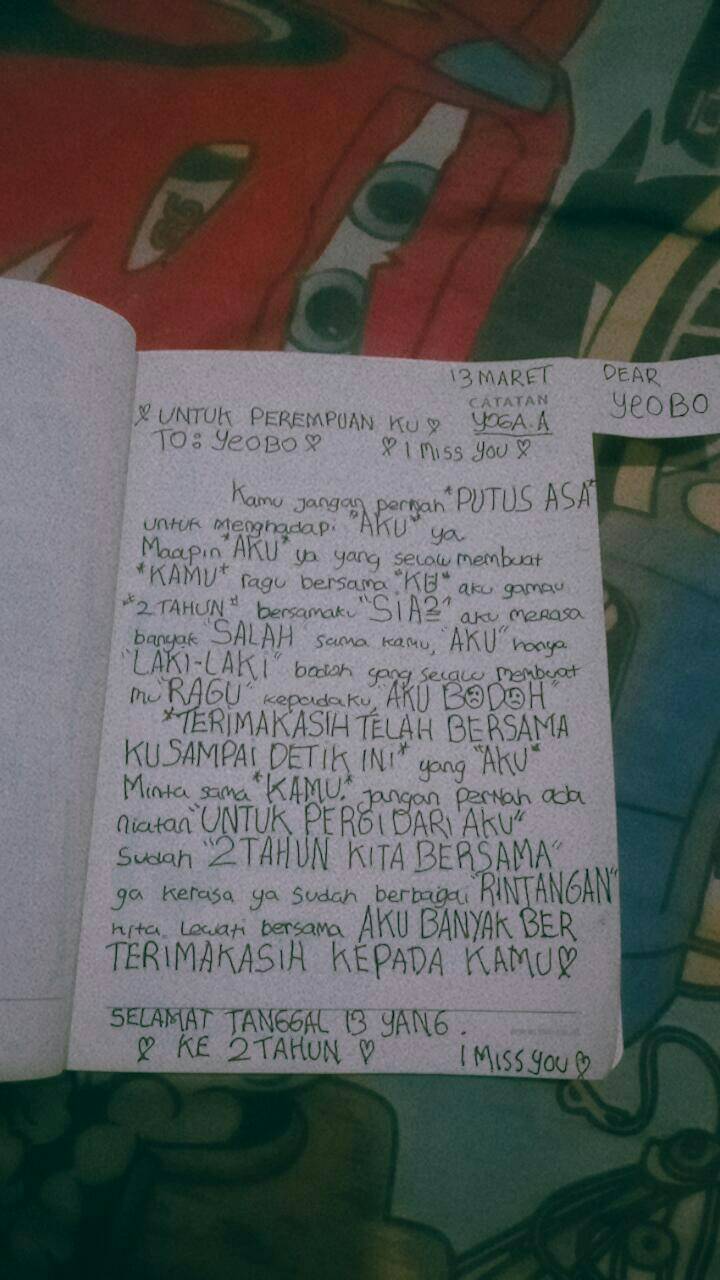 13 MARET
DEAR
YEOBO
♡ UNTUK PEREMPUAN KU ♡
CATATAN
YOGA.A
TO: YEOBO ♡ ♡ I MISS YOU ♡
Kamu jangan pernah "PUTUS ASA"
untuk menghadapi "AKU" ya
Maapin "AKU" ya yang selalu membuat
"KAMU" ragu bersama "KU" aku gamau
"2 TAHUN" bersamaku "SIA2" aku merasa
banyak "SALAH" sama kamu, "AKU" hanya
"LAKI-LAKI" bodoh yang selalu membuat
mu "RAGU" kepadaku, "AKU BODOH"
"TERIMAKASIH TELAH BERSAMA
KU SAMPAI DETIK INI" yang "AKU"
Minta sama "KAMU" jangan pernah ada
niatan "UNTUK PERGI DARI AKU"
Sudah "2 TAHUN KITA BERSAMA"
ga kerasa ya sudah berbagai "RINTANGAN"
kita lewati bersama AKU BANYAK BER
TERIMAKASIH KEPADA KAMU ♡
SELAMAT TANGGAL 13 YANG.
♡ KE 2 TAHUN ♡ I MISS YOU ♡